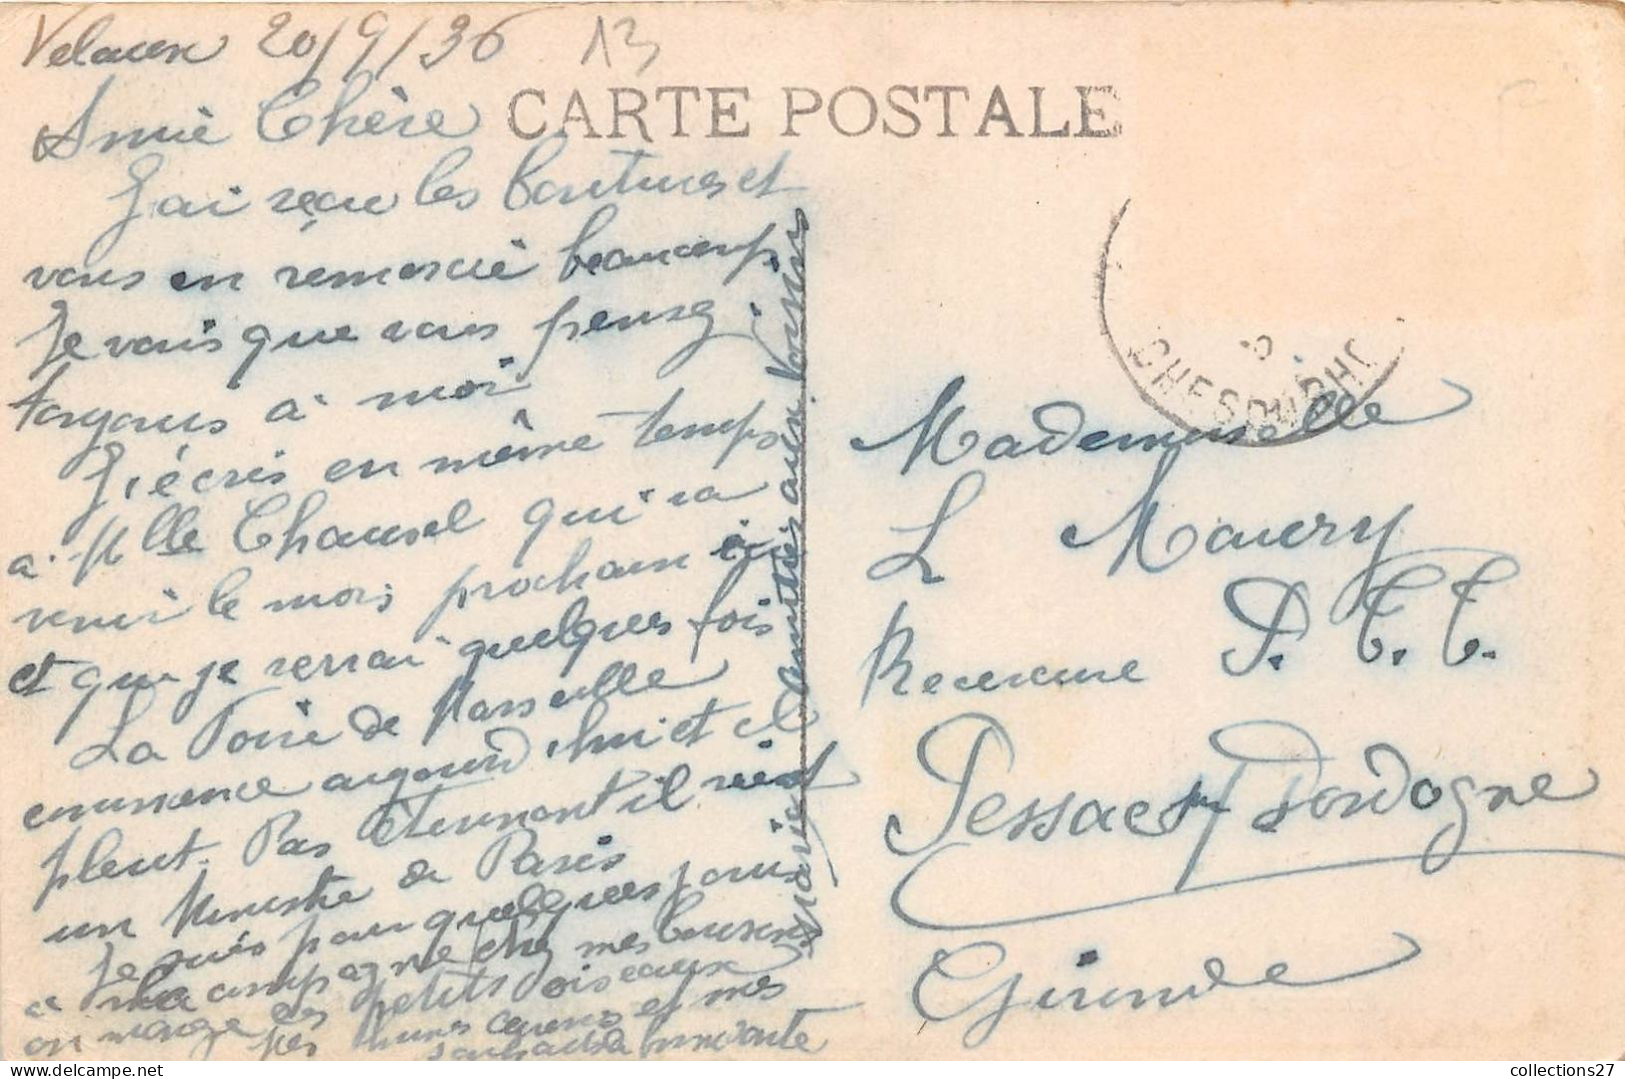 Velaux 20/9/36 13
CARTE POSTALE
Amie Chère
J'ai reçu les boutures et
vous en remercie beaucoup.
Je vois que vous pensez
toujours à moi
J'écris en même temps
a Mlle Chausel qui va
venir le mois prochain ici
et que je verrai quelques fois
La Foire de Marseille
commence aujourd'hui et il
pleut. Pas étonnant il vient
un Ministre de Paris
Je suis pour quelques jours
a la campagne chez mes Cousins
on mange des petits oiseaux
amitiés aux Voisins
Mademoiselle
L Maury
Receveuse P. T. T.
Pessac s/ Dordogne
Gironde
collections27